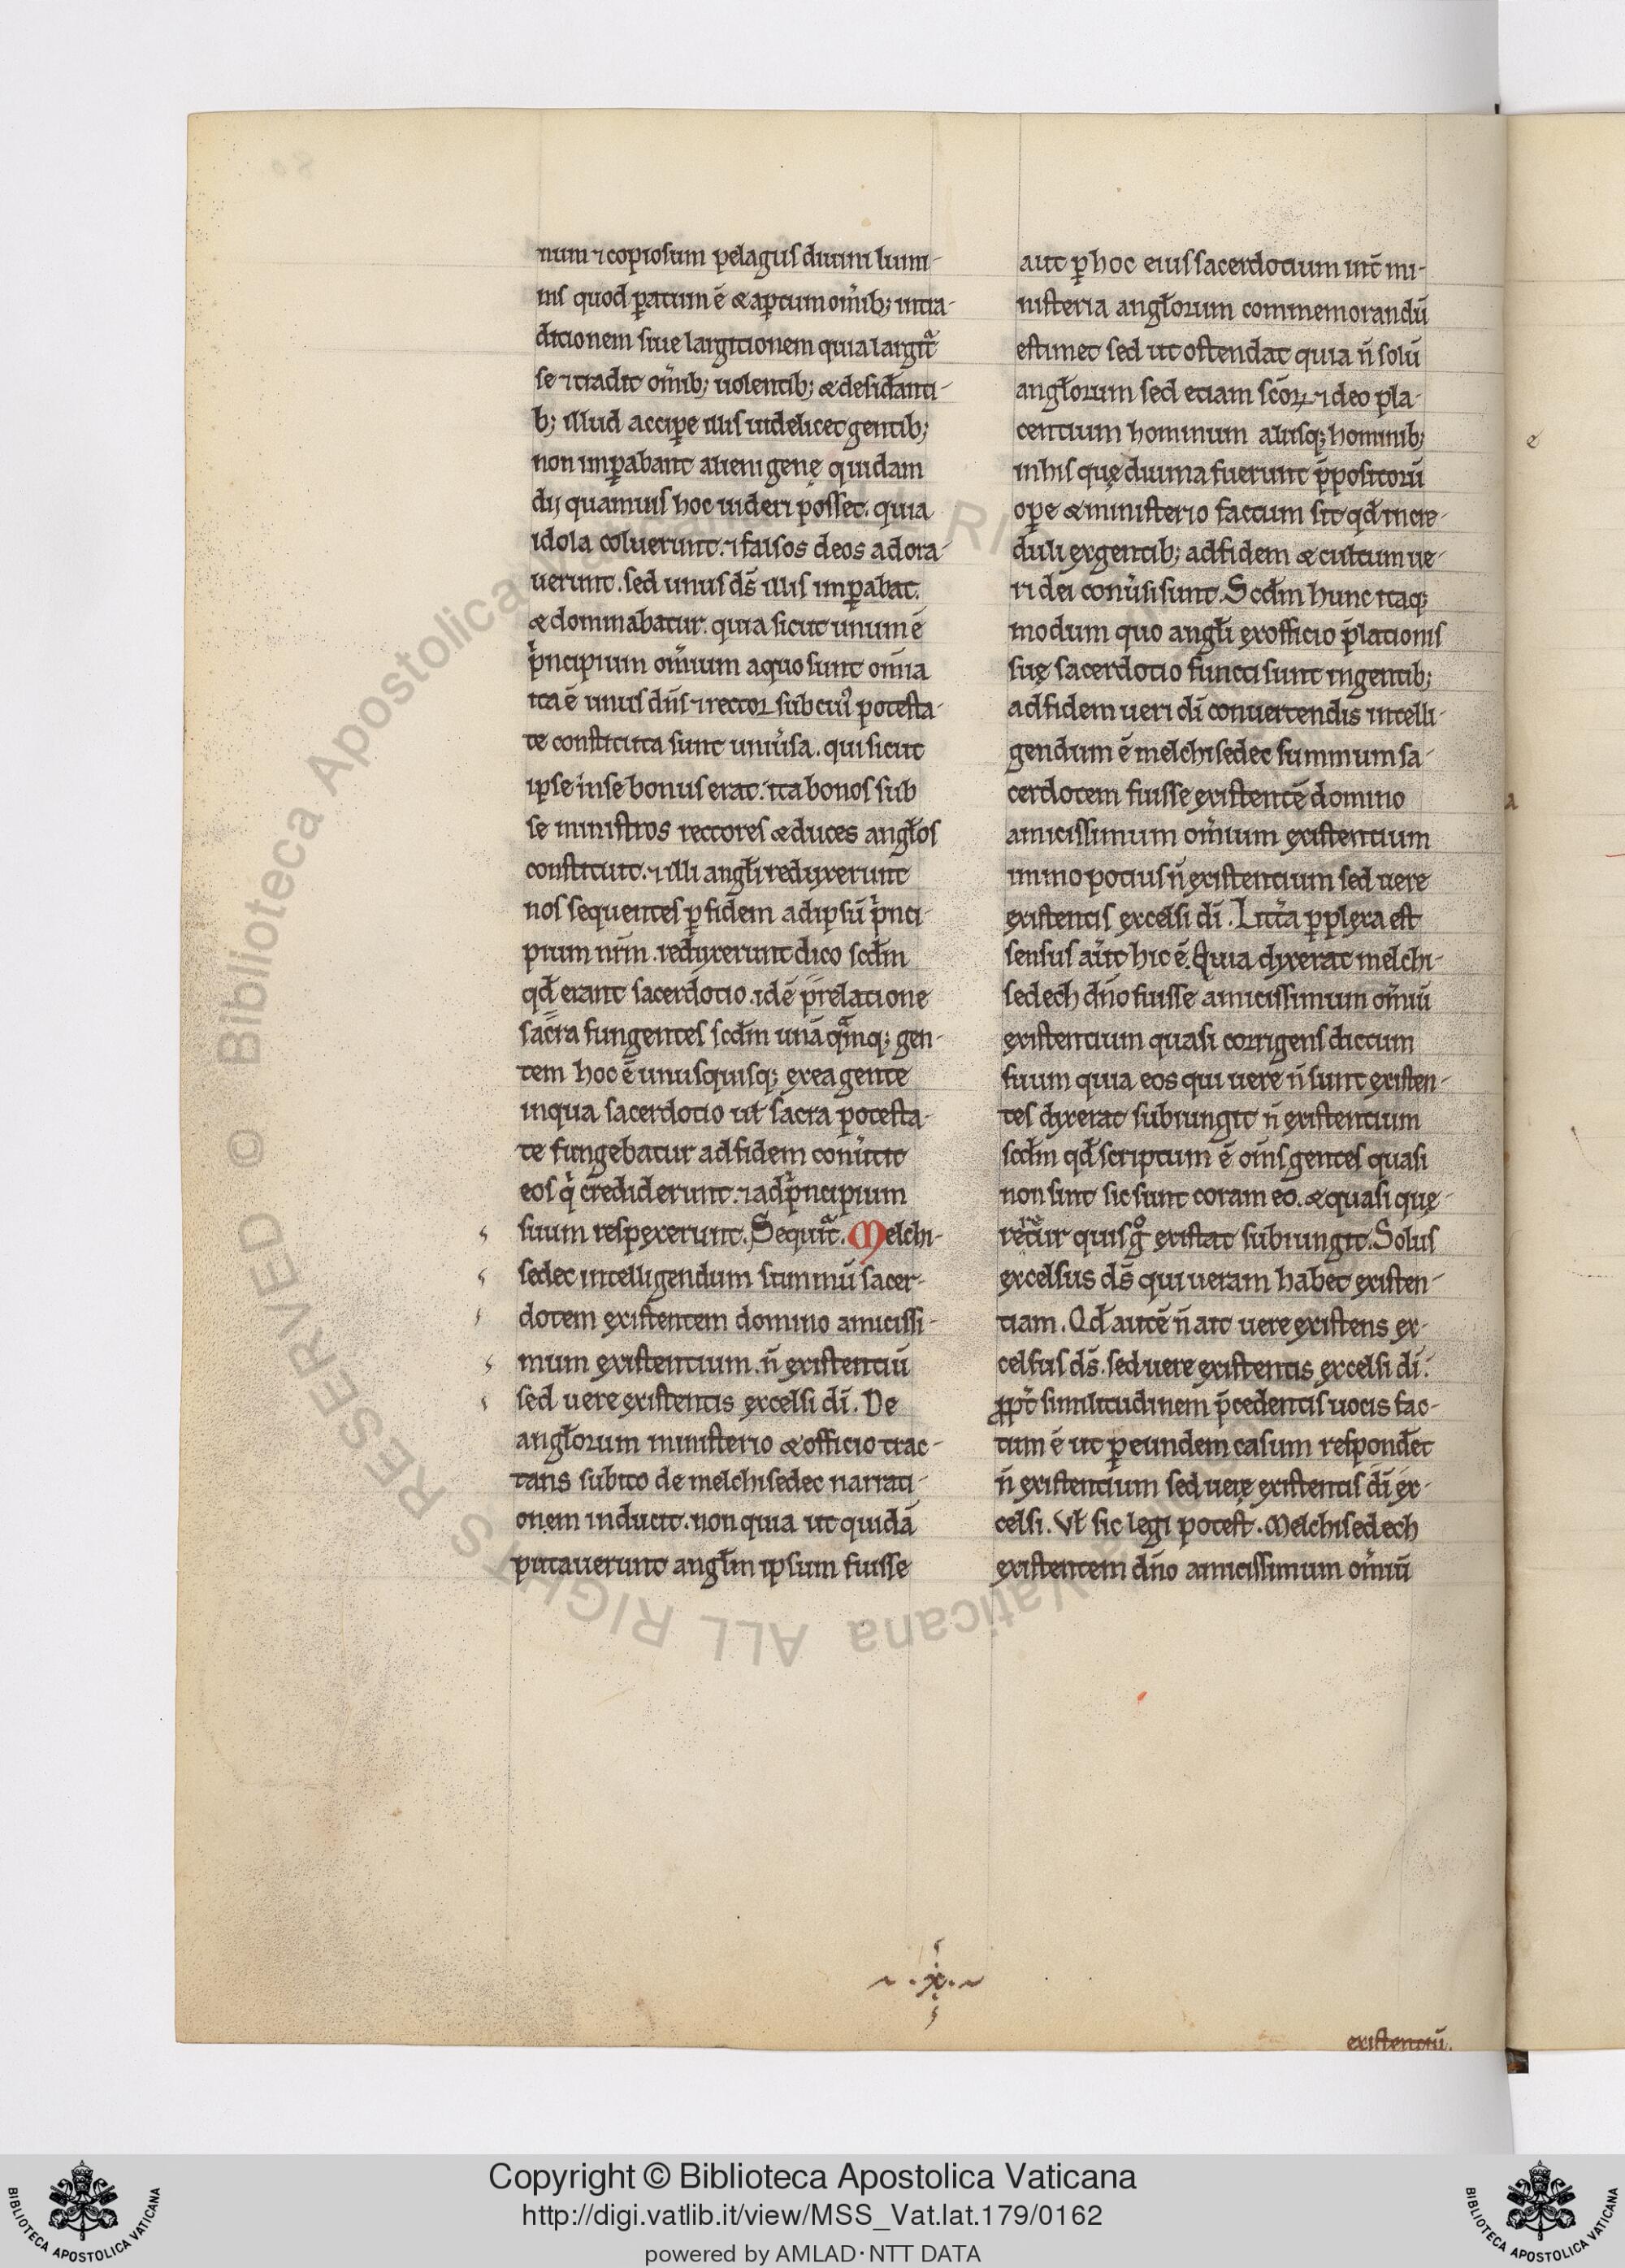 num ⁊ copiosum pelagus diuini lumi-
nis quod paratum ē & aꝑtum om̄ib; intra-
ditionem siue largitionem quia largit᷑
se ⁊ tradit om̄ib; uolentib; & desid̄anti-
b; illud accipe illis uidelicet gentib;
non imꝑabant alienigenę quidam
dij quamuis hoc uideri posset. quia
idola coluerunt. ⁊ falsos deos adora-
uerunt. sed unus ds̄ illis imꝑabat.
& dominabatur. quia sicut unum ē
p̓ncipium om̄ium aquo sunt om̄ia
ita ē unus dn̄s ⁊ rector sub cuiꝰ potesta-
te constituta sunt uniũsa. qui sicut
ipse inse bonus erat. ita bonos sub
se ministros rectores & duces angl̄os
constituit. ⁊ illi angl̄i reduxerunt
nos sequentes ꝑ fidem adipsū p̓nci-
pium nr̄m. reduxerunt dico scd̄m
qd̄ erant sacerdotio. id ē p̄relatione
sac̄ra fungentes scd̄m unā q̄mq; gen-
tem hoc ē unusquisq; exea gente
inqua sacerdotio ul̄ sacra potesta-
te fungebatur adfidem conũtit
eos q̓ crediderunt. ⁊ adp̓ncipium
suum respexerunt. Sequit᷑. Melchi-
sedec intelligendum summū sacer-
dotem existentem domino amicissi-
mum existentium. n̄ existentiū
sed uere existentis excelsi di̅. De
angl̄orum ministerio & officio trac-
tans subito de melchisedec narrati-
onem inducit. non quia ut quidā
putauerunt angl̄m ipsum fuisse
aut ꝑ hoc eius sacerdotium int̄ mi-
nisteria angl̄orum commemorandū
estimet sed ut ostendat quia n̄ solū
angl̄orum sed etiam sc̄oꝝ ⁊ deo pla-
centium hominum aliisq; hominib;
inhis quę diuina fuerunt p̄positorū
ope & ministerio factum sit qd̄ incre-
duli exgentib; adfidem & cultum ue-
ri dei conũsi sunt. Scd̄m hunc itaq;
modum quo angl̄i exofficio p̄lationis
suę sacerdotio functi sunt ingentib;
adfidem ueri di̅ conuertendis intelli-
gendum ē melchisedec summum sa-
cerdotem fuisse existentē domino
amicissimum om̄ium existentium
immo potius n̄ existentium sed uere
existentis excelsi di̅. Litt̄a ꝑplexa est
sensus aūt hic ē. Quia dixerat melchi-
sedech dn̄o fuisse amicissimum om̄iū
existentium quasi corrigens dictum
suum quia eos qui uere n̄ sunt existen-
tes dixerat subiungit n̄ existentium
scd̄m qd̄ scriptum ē om̄s gentes quasi
non sint sic sunt coram eo. & quasi quę-
reret᷑ur quis gͦ existat subiungit. Solus
excelsus ds̄ qui ueram habet existen-
tiam. Qd̄ autē n̄ ait uere existens ex-
celsus ds̄. sed uere existentis excelsi di̅.
ꝓpt̄ similitudinem p̄cedentis uocis fac-
tum ē ut ꝑ eundem casum respond̄et
n̄ existentium sed uere existentis di̅ ex-
celsi. Vl̄ sic legi potest. Melchisedech
existentem dn̄o amicissimum om̄iū
.x.
existentiū.
Copyright © Biblioteca Apostolica Vaticana
http://digi.vatlib.it/view/MSS_Vat.lat.179/0162
powered by AMLAD·NTT DATA
BIBLIOTECA APOSTOLICA VATICANA
BIBLIOTECA APOSTOLICA VATICANA